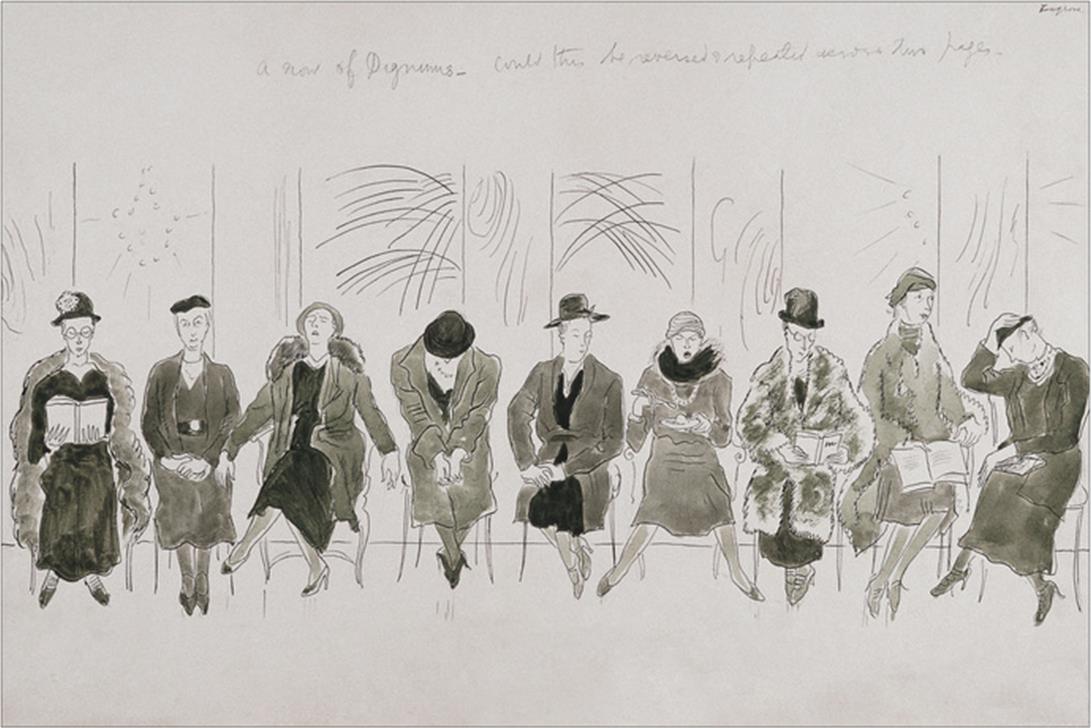 a row of Dignums - could this be reversed & repeated across two pages -